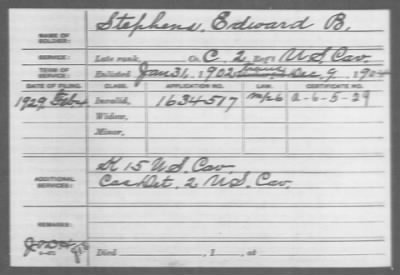 NAME OF SOLDIER: Stephens, Edward B.
SERVICE: Late rank, Co. C. 2 Reg't U.S. Cav.
TERM OF SERVICE: Enlisted Jan 31, 1902 Dec. 9, 1904
DATE OF FILING. CLASS. APPLICATION NO. LAW. CERTIFICATE NO.
1929 Feb 4 Invalid, 1634517 a-6-5-29
Widow,
Minor,
ADDITIONAL SERVICES: K 15 U.S. Cav.
Cas Det. 2 U.S. Cav.
REMARKS:
Died , 1 , at